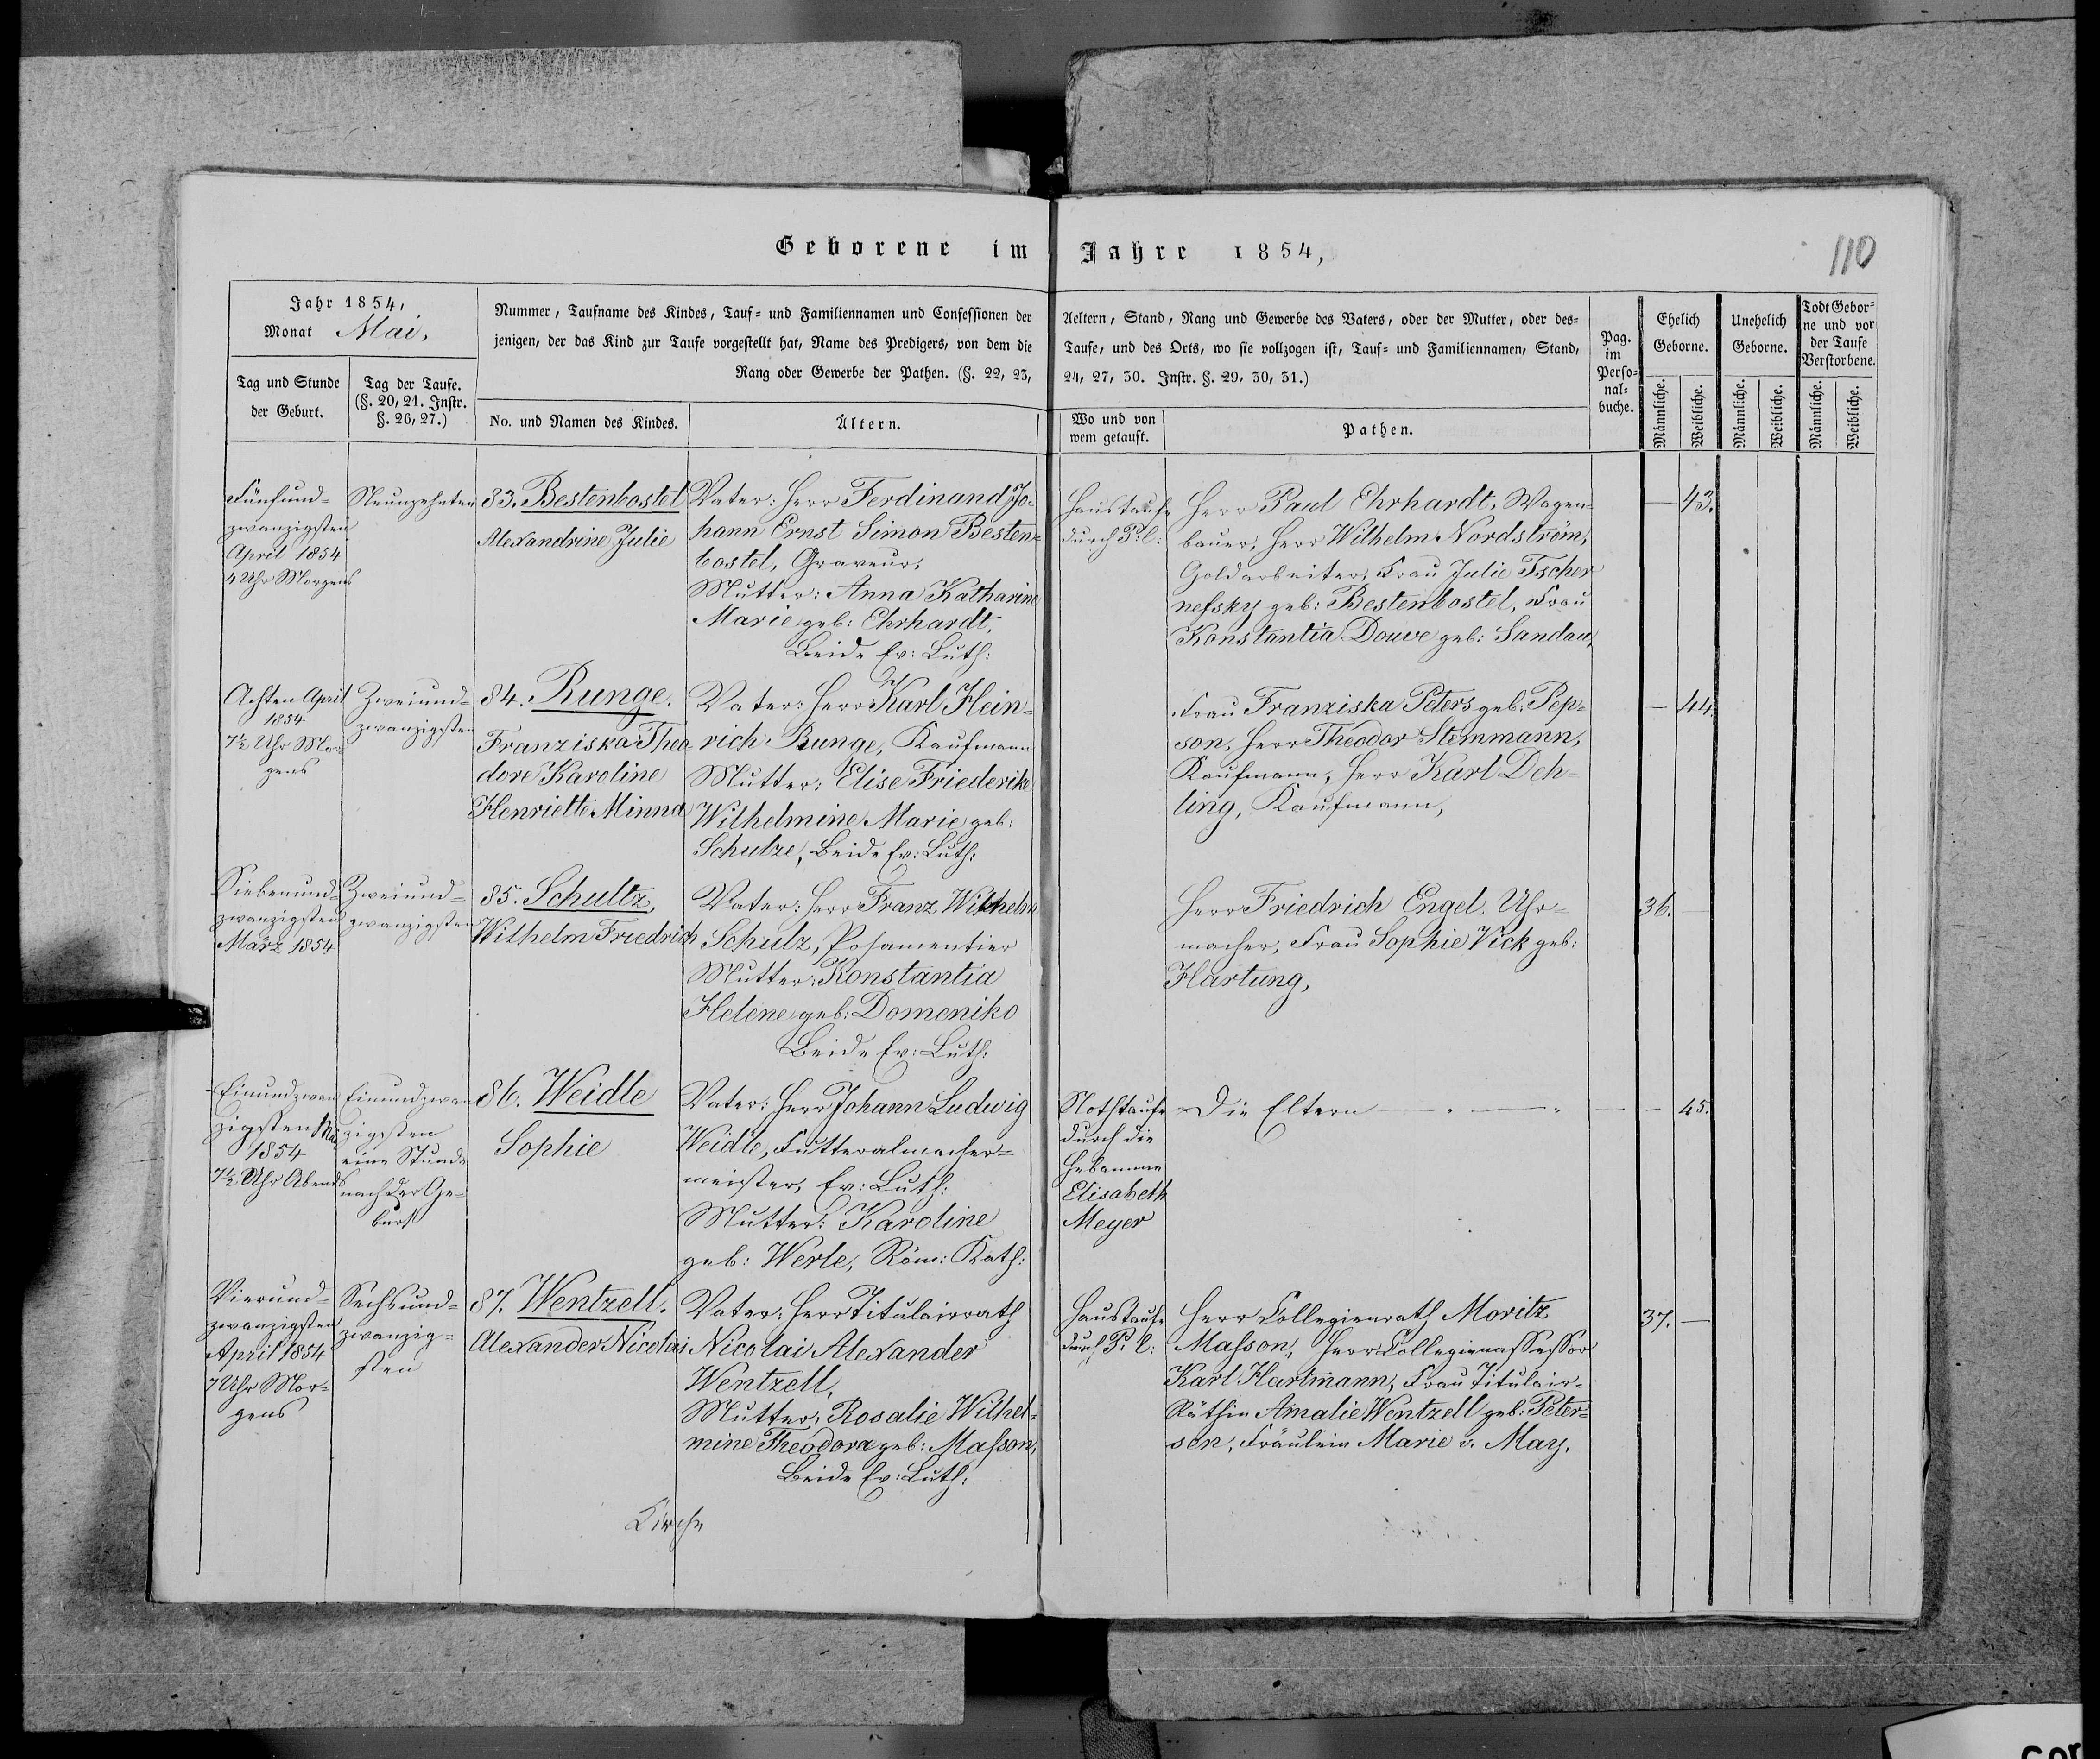 Geborene im Jahre 1854,
110
Jahr 1854,
Monat Mai.
Tag und Stunde
der Geburt.
Tag der Taufe.
(§. 20, 21. Instr.
§. 26, 27.)
Nummer, Taufname des Kindes, Tauf- und Familiennamen und Confessionen der
jenigen, der das Kind zur Taufe vorgestellt hat, Name des Predigers, von dem die
Rang oder Gewerbe der Pathen. (§. 22, 23,
No. und Namen des Kindes.
Ältern.
Aeltern, Stand, Rang und Gewerbe des Vaters, oder der Mutter, oder des-
Taufe, und des Orts, wo sie vollzogen ist, Tauf- und Familiennamen, Stand,
24, 27, 30. Instr. §. 29, 30, 31.)
Wo und von
wem getauft.
Pathen.
Pag.
im
Perso-
nal-
buche.
Ehelich
Geborne.
Unehelich
Geborne.
Todt Gebor-
ne und vor
der Taufe
Verstorbene.
Männliche.
Weibliche.
Männliche.
Weibliche.
Männliche.
Weibliche.
Fünfund-
zwanzigsten
April 1854
4 Uhr Morgens
Neunzehnten
83. Bestenbostel
Alexandrine Julie
Vater: Herr Ferdinand Jo-
hann Ernst Simon Besten-
bostel, Graveur,
Mutter: Anna Katharine
Marie geb: Ehrhardt,
Beide Ev: Luth:
Haustaufe
durch P. l:
Herr Paul Ehrhardt, Wagen-
bauer, Herr Wilhelm Nordström,
Goldarbeiter, Frau Julie Tscher
nefsky geb: Bestenbostel, Frau
Konstantia Douve geb: Sandau,
— 43.
Achten April
1854
7½ Uhr Mor
gens
Zweiund-
zwanzigsten
84. Runge.
Franziska Theo-
dore Karoline
Henriette Minna
Vater: Herr Karl Hein-
rich Runge, Kaufmann
Mutter: Elise Friederike
Wilhelmine Marie geb:
Schulze, Beide Ev: Luth:
Frau Franziska Peters geb: Pep-
son, Herr Theodor Stemmann,
Kaufmann, Herr Karl Deh-
ling, Kaufmann,
— 44.
Siebenund-
zwanzigsten
März 1854
Zweiund-
zwanzigsten
85. Schultz,
Wilhelm Friedrich
Vater: Herr Franz Wilhelm
Schulz, Posamentier
Mutter: Konstantia
Helene geb: Domeniko
Beide Ev: Luth:
Herr Friedrich Engel, Uhr-
macher, Frau Sophie Vick geb:
Hartung,
36. —
Einundzwan
zigsten Mai
1854
7½ Uhr Abends
Einundzwan
zigsten
eine Stunde
nach der Ge-
burt
86. Weidle
Sophie
Vater: Herr Johann Ludwig
Weidle, Futteralmacher-
meister, Ev: Luth:
Mutter: Karoline
geb: Werle, Röm: Kath:
Nothtaufe
durch die
Hebamme
Elisabeth
Meyer
Die Eltern
— 45.
Vierund-
zwanzigsten
April 1854
7 Uhr Mor-
gens
Sechsund-
zwanzig-
sten
87. Wentzell.
Alexander Nicolai
Vater: Herr Titulairrath
Nicolai Alexander
Wentzell,
Mutter: Rosalie Wilhel-
mine Theodora geb: Masson,
Beide Ev: Luth:
Haustaufe
durch P. l:
Herr Collegienrath Moritz
Masson, Herr Collegienassessor
Karl Hartmann, Frau Titulair-
Räthin Amalie Wentzell geb: Peter-
sen, Fräulein Marie v. May.
37. —
Kirche